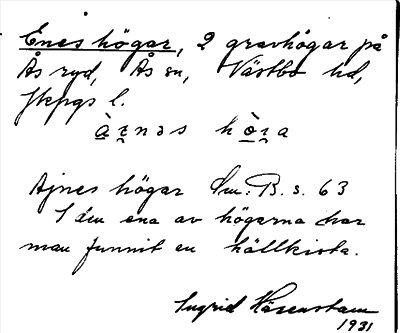 Enes högar, 2 gravhögar på
Ås ryd, Ås sn, Västbo hd,
Jkpgs l.
Ajnes högar Sm. B. s. 63
I den ena av högarna har
man funnit en hällkista.
Ingrid
1931